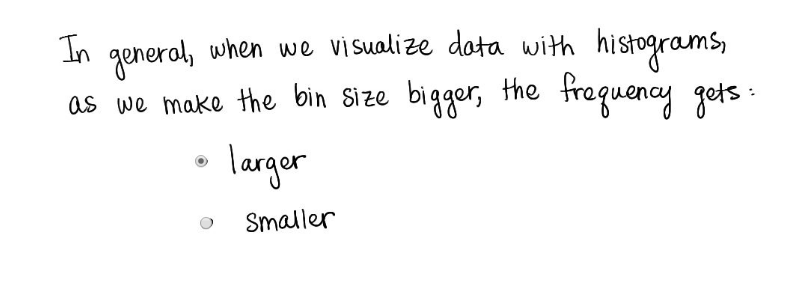 In general, when we visualize data with histograms,
as we make the bin size bigger, the frequency gets:
larger
smaller